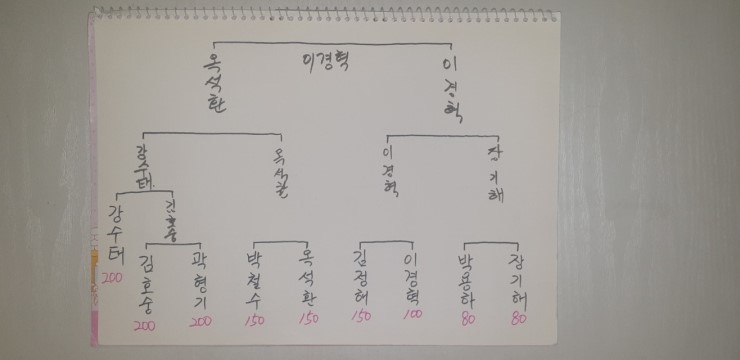 이경혁
옥석환
이경혁
강수태
옥석환
이경혁
장기해
강수태
김호중
200
김호숭
곽형기
박철수
옥석환
김정해
이경혁
박용하
장기해
200
200
150
150
150
100
80
80